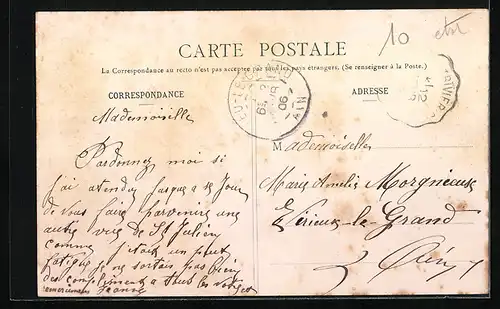 10
CARTE POSTALE
La Correspondance au recto n'est pas acceptée par tous les pays étrangers. (Se renseigner à la Poste.)
CORRESPONDANCE
ADRESSE
Mademoiselle
Pardonnez moi si
j'ai atendu jusqua a se Jour
de vous faire parvenire une
autre vue de St Julien
comme j'étais un peut
fatigué je ne sortais pas bien
des compliments a tous les votres
Jeanne
Mademoiselle
Marie Amelie Morgnieux
Virieux-le-Grand
Ain